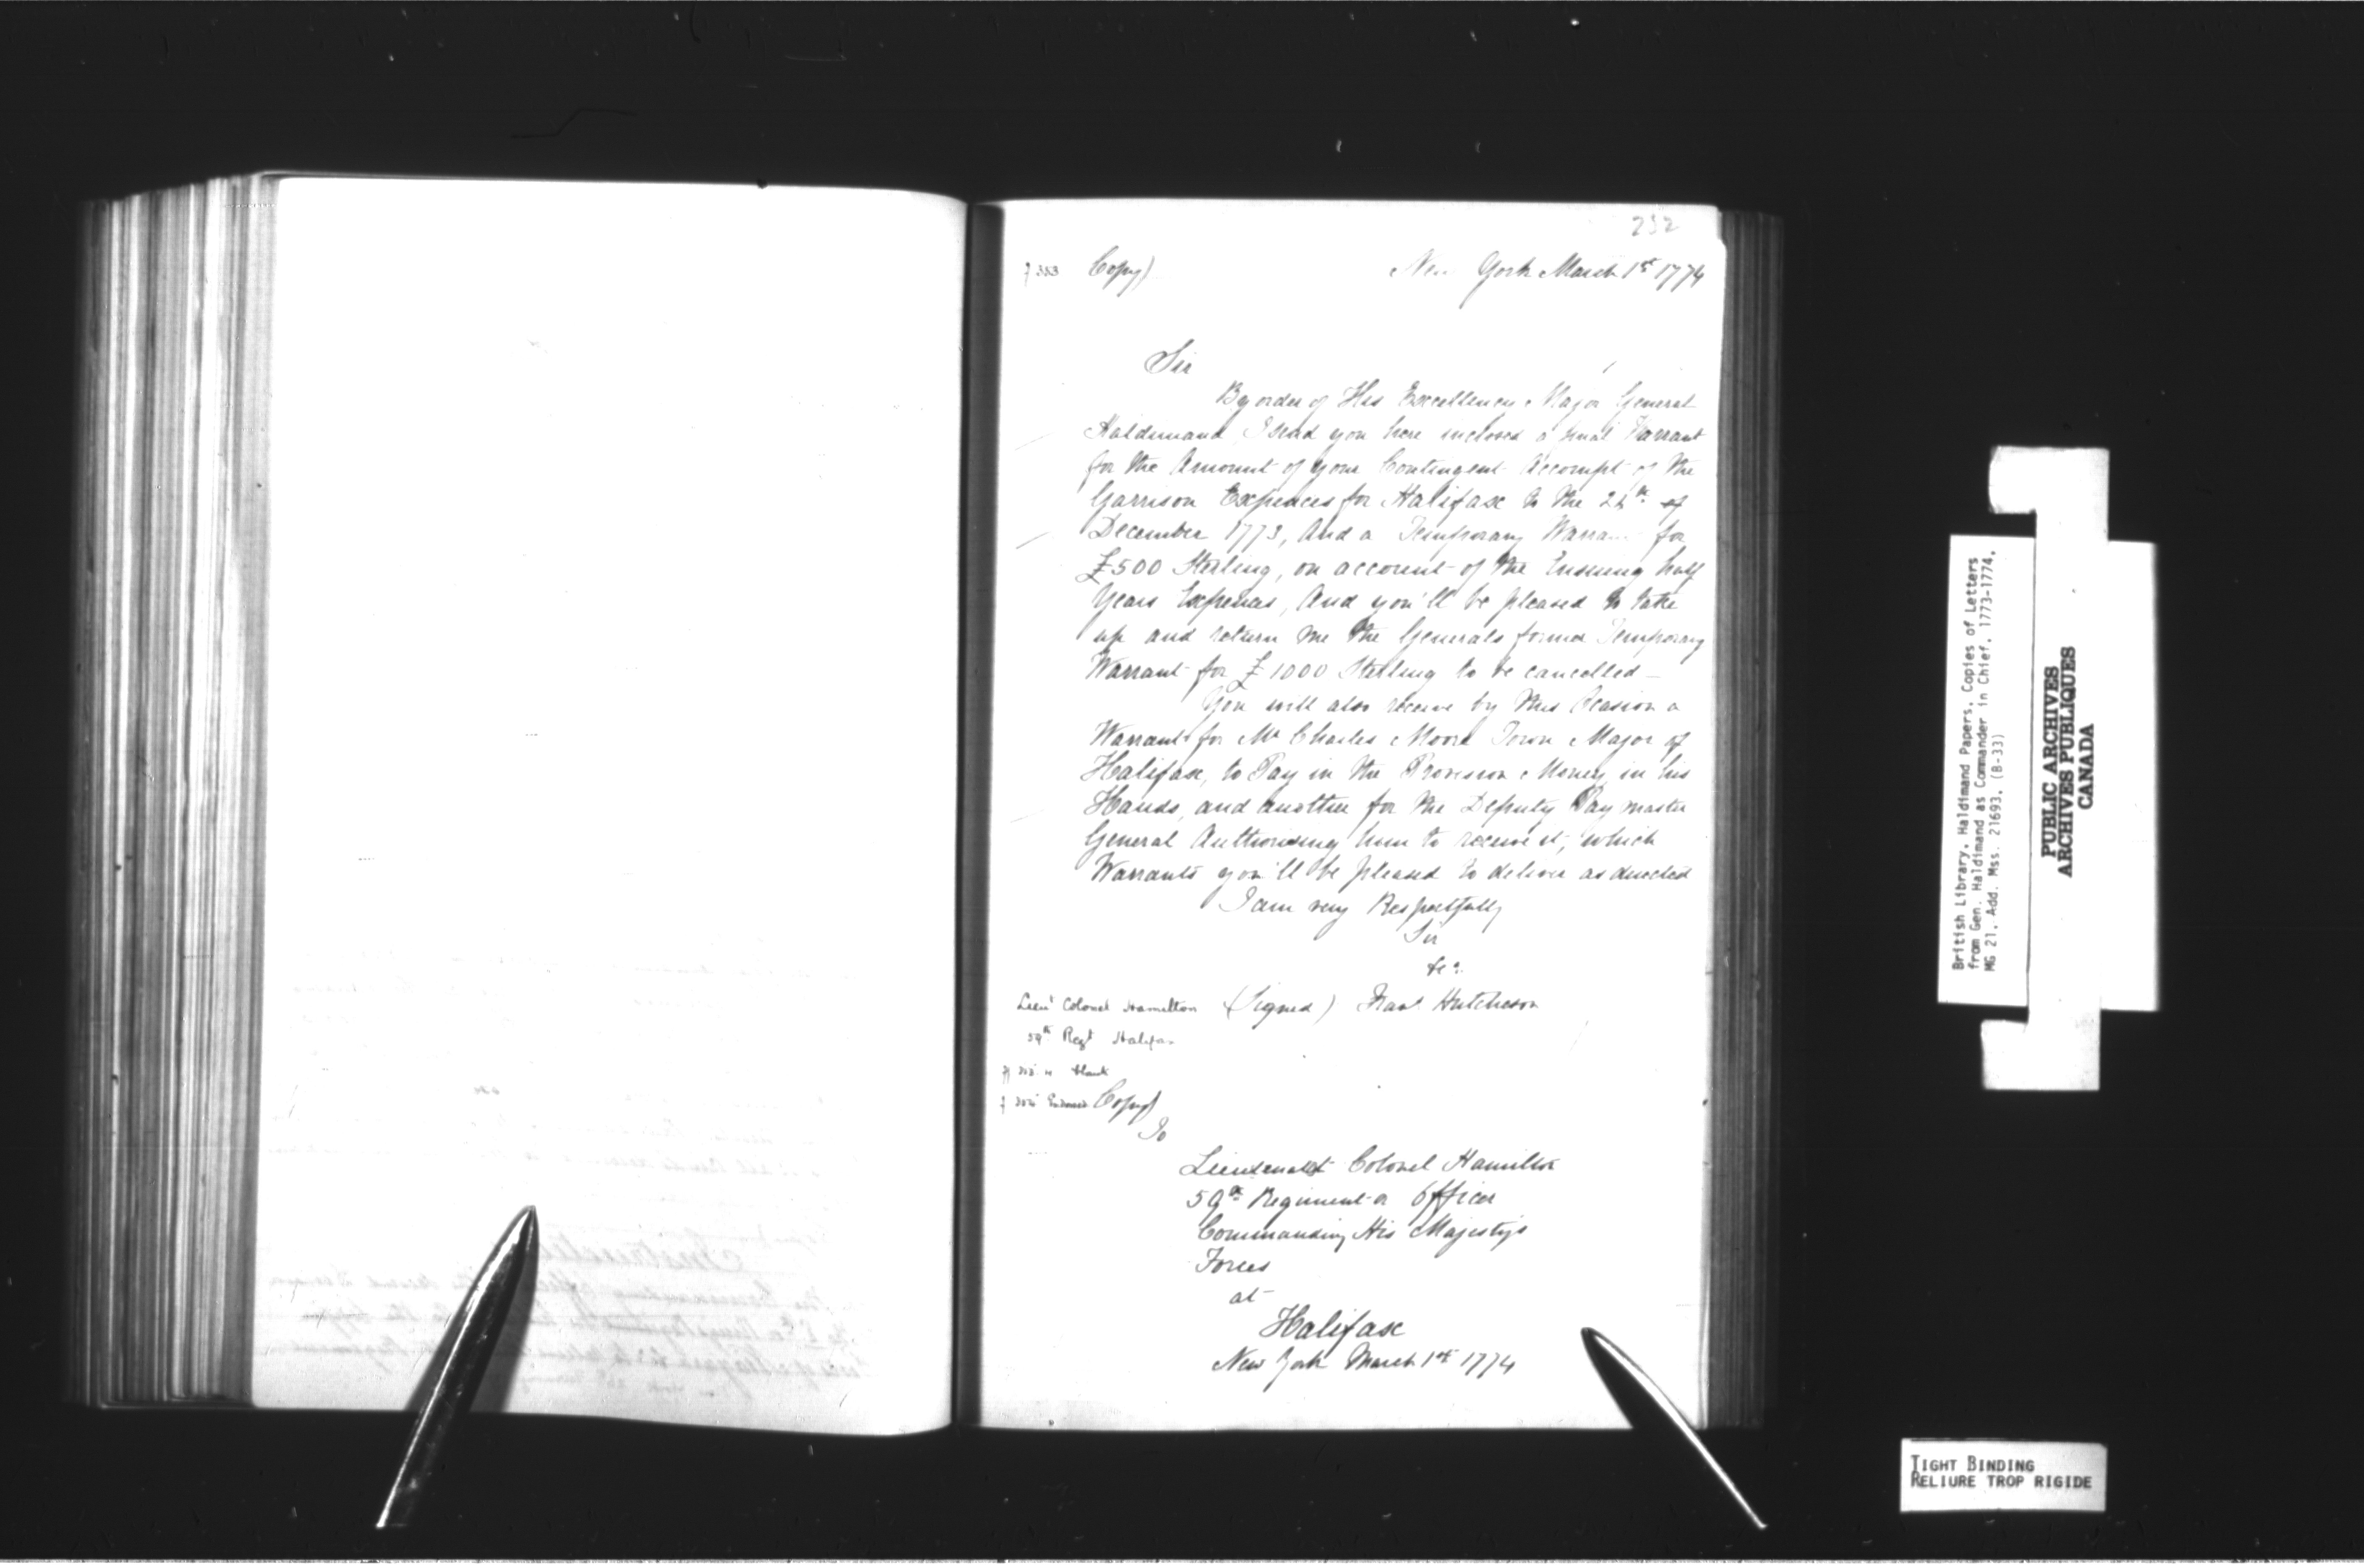 232
f 353 Copy) New York March 1st 1774
Sir
By order of His Excellency Major General
Haldimand, I send you here inclosed a final Warrant
for the Amount of your Contingent Accompt of the
Garrison Expences for Halifax to the 24th of
December 1773, And a Temporary Warra... for
£500 Sterling, on account of the Ensuing half
Years Expences, And you'll be pleased to take
up and return me the Generals former Temporary
Warrant for £1000 Sterling to be cancelled —
You will also receive by this Ocasion a
Warrant for Mr Charles Moore Town Major of
Halifax, to Pay in the Provision Money in his
Hands, and another for the Deputy Pay master
General Authorising him to receive it, which
Warrants you'll be pleased to deliver as directed
I am very Respectfully
Sir
&c.
Lieut Colonel Hamilton (Signed) Fras Hutcheson
59th Regt Halifax
blank
Endorsed Copy)
To
Lieutenant Colonel Hamilton
59th Regiment or Officer
Commanding His Majestys
Forces
at
Halifax
New York March 1st 1774
British Library, Haldimand Papers, Copies of Letters
from Gen. Haldimand as Commander in Chief, 1773-1774,
MG 21, Add. Mss. 21693, (B-33)
PUBLIC ARCHIVES
ARCHIVES PUBLIQUES
CANADA
TIGHT BINDING
RELIURE TROP RIGIDE